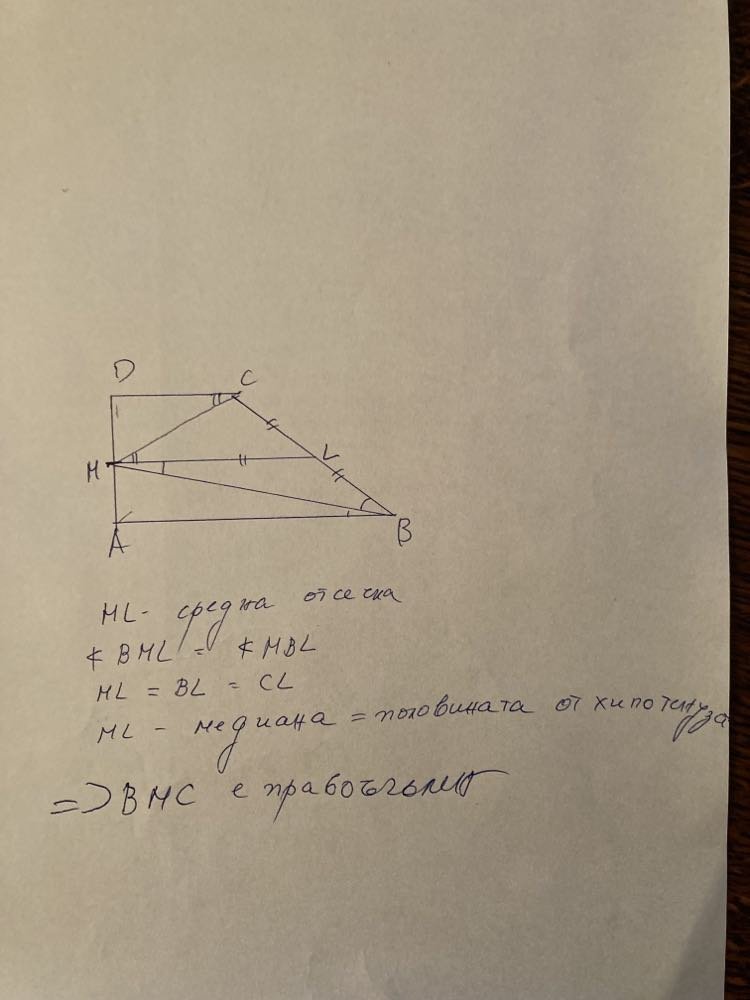 D
C
M
L
A
B
ML - средна отсечка
∢ BML = ∢ MBL
ML = BL = CL
ML - медиана = половината от хипотенуза
=> BMC е правоъгълен